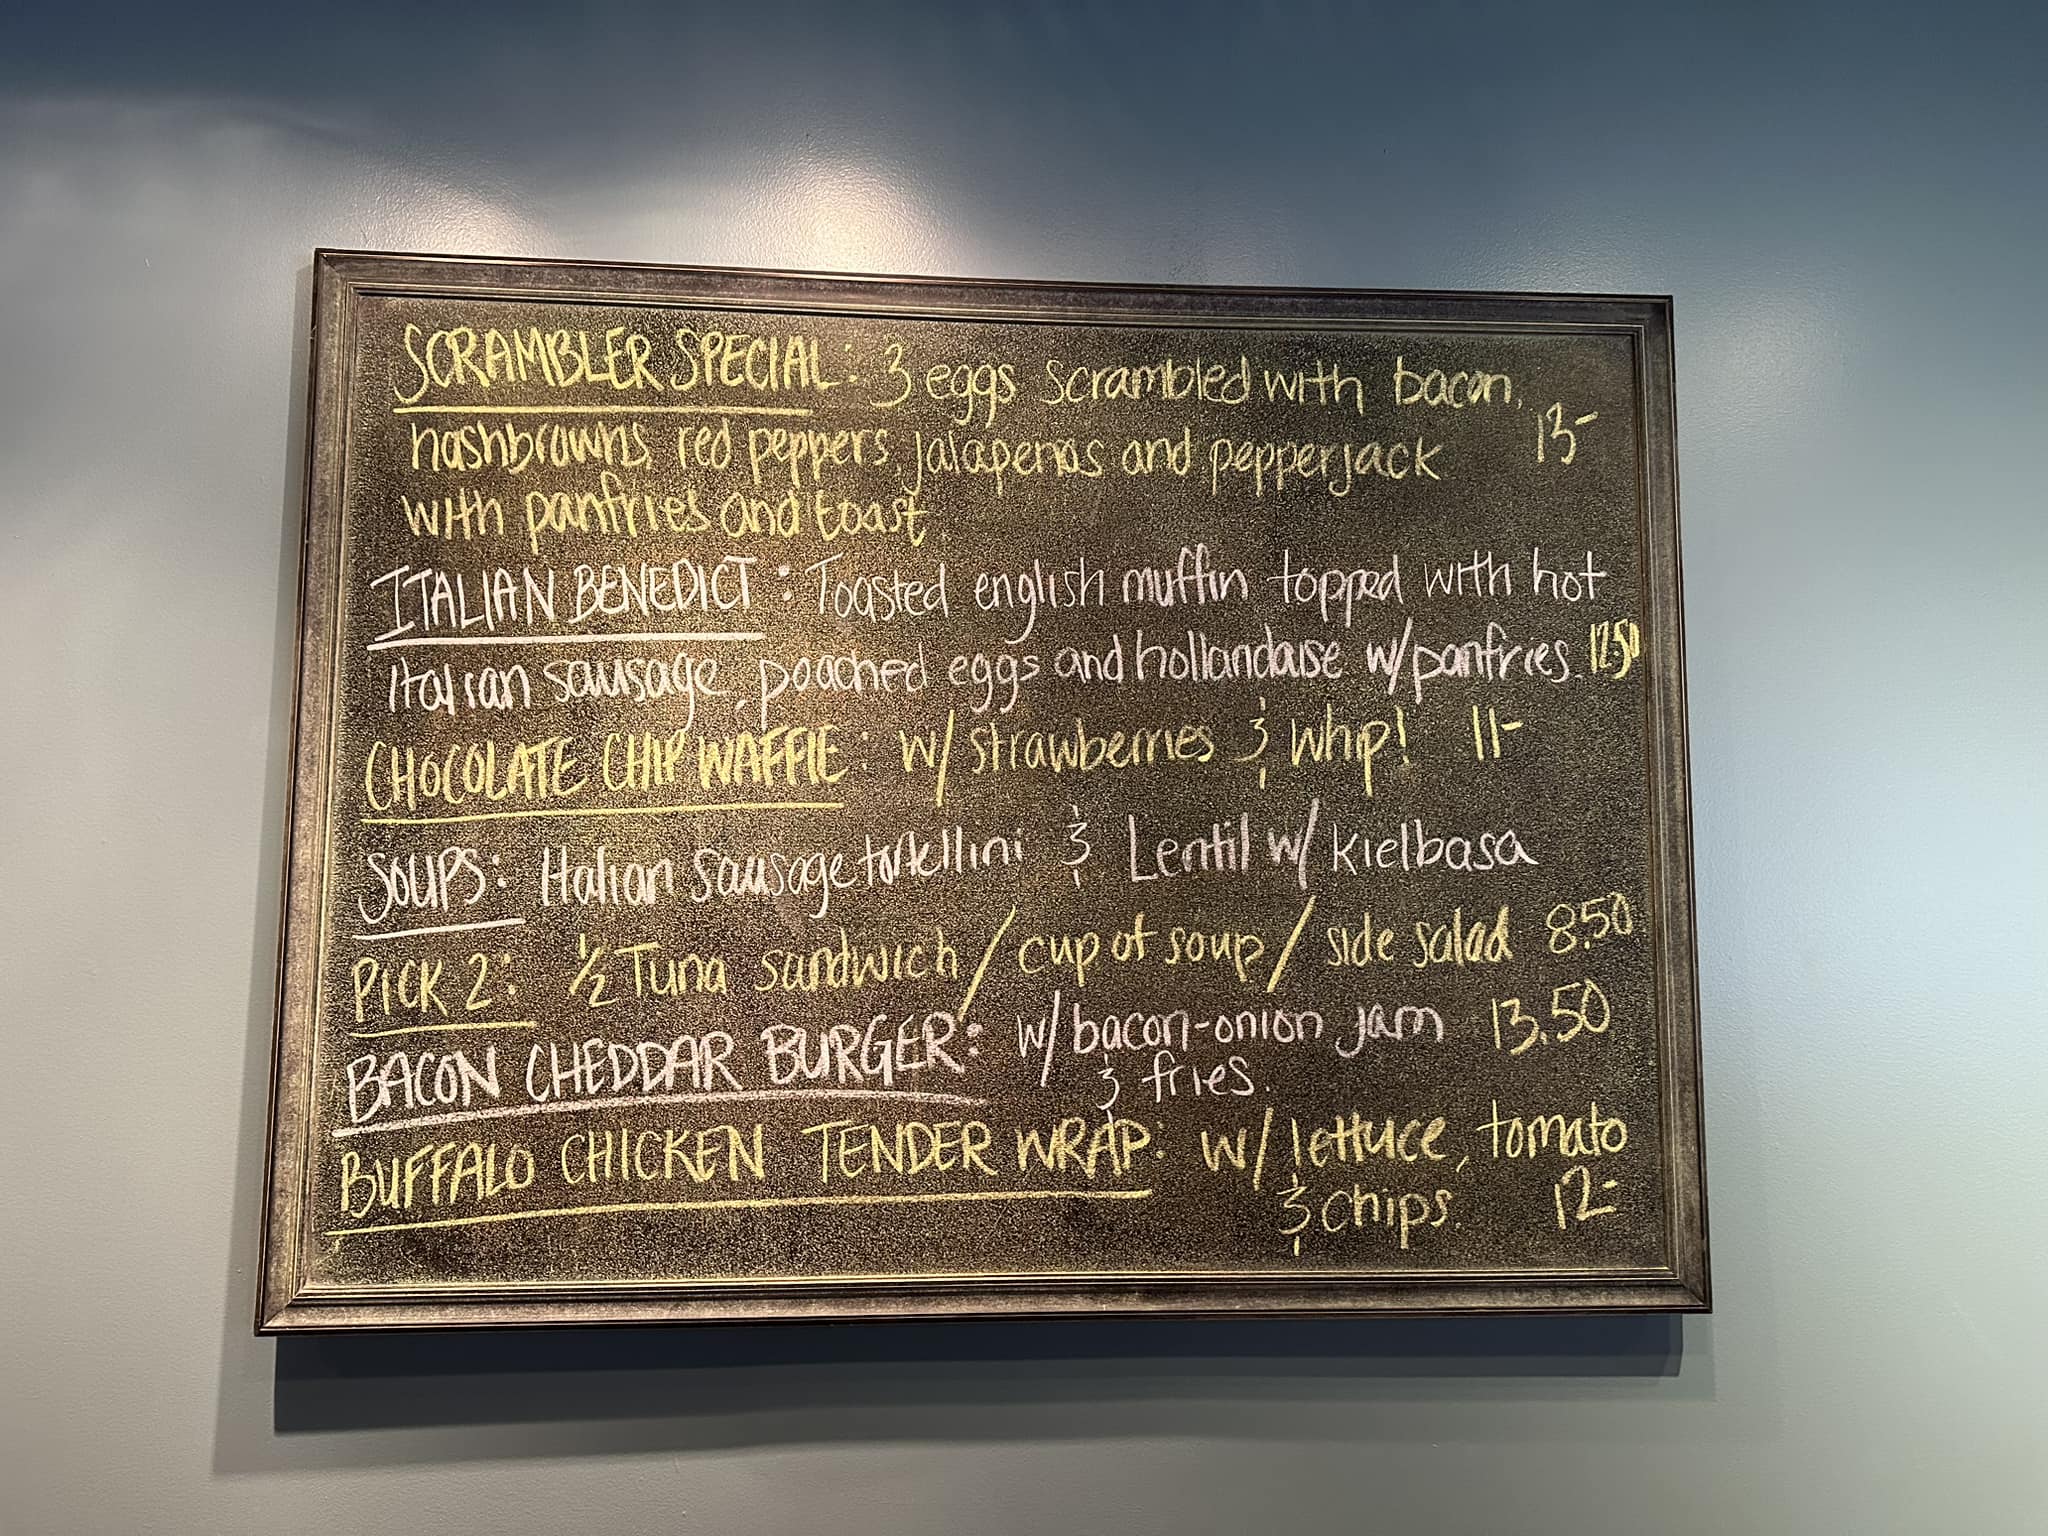 SCRAMBLER SPECIAL: 3 eggs scrambled with bacon,
hashbrowns, red peppers, jalapenos and pepperjack 13-
with panfries and toast
ITALIAN BENEDICT: Toasted english muffin topped with hot
Italian sausage, poached eggs and hollandaise w/panfries. 12.50
CHOCOLATE CHIP WAFFLE: w/ strawberries & whip! 11-
SOUPS: Italian sausage tortellini & Lentil w/ kielbasa
PICK 2: 1/2 Tuna sandwich / cup of soup / side salad 8.50
BACON CHEDDAR BURGER: w/ bacon-onion jam 13.50
& fries.
BUFFALO CHICKEN TENDER WRAP: w/ lettuce, tomato
& chips. 12-